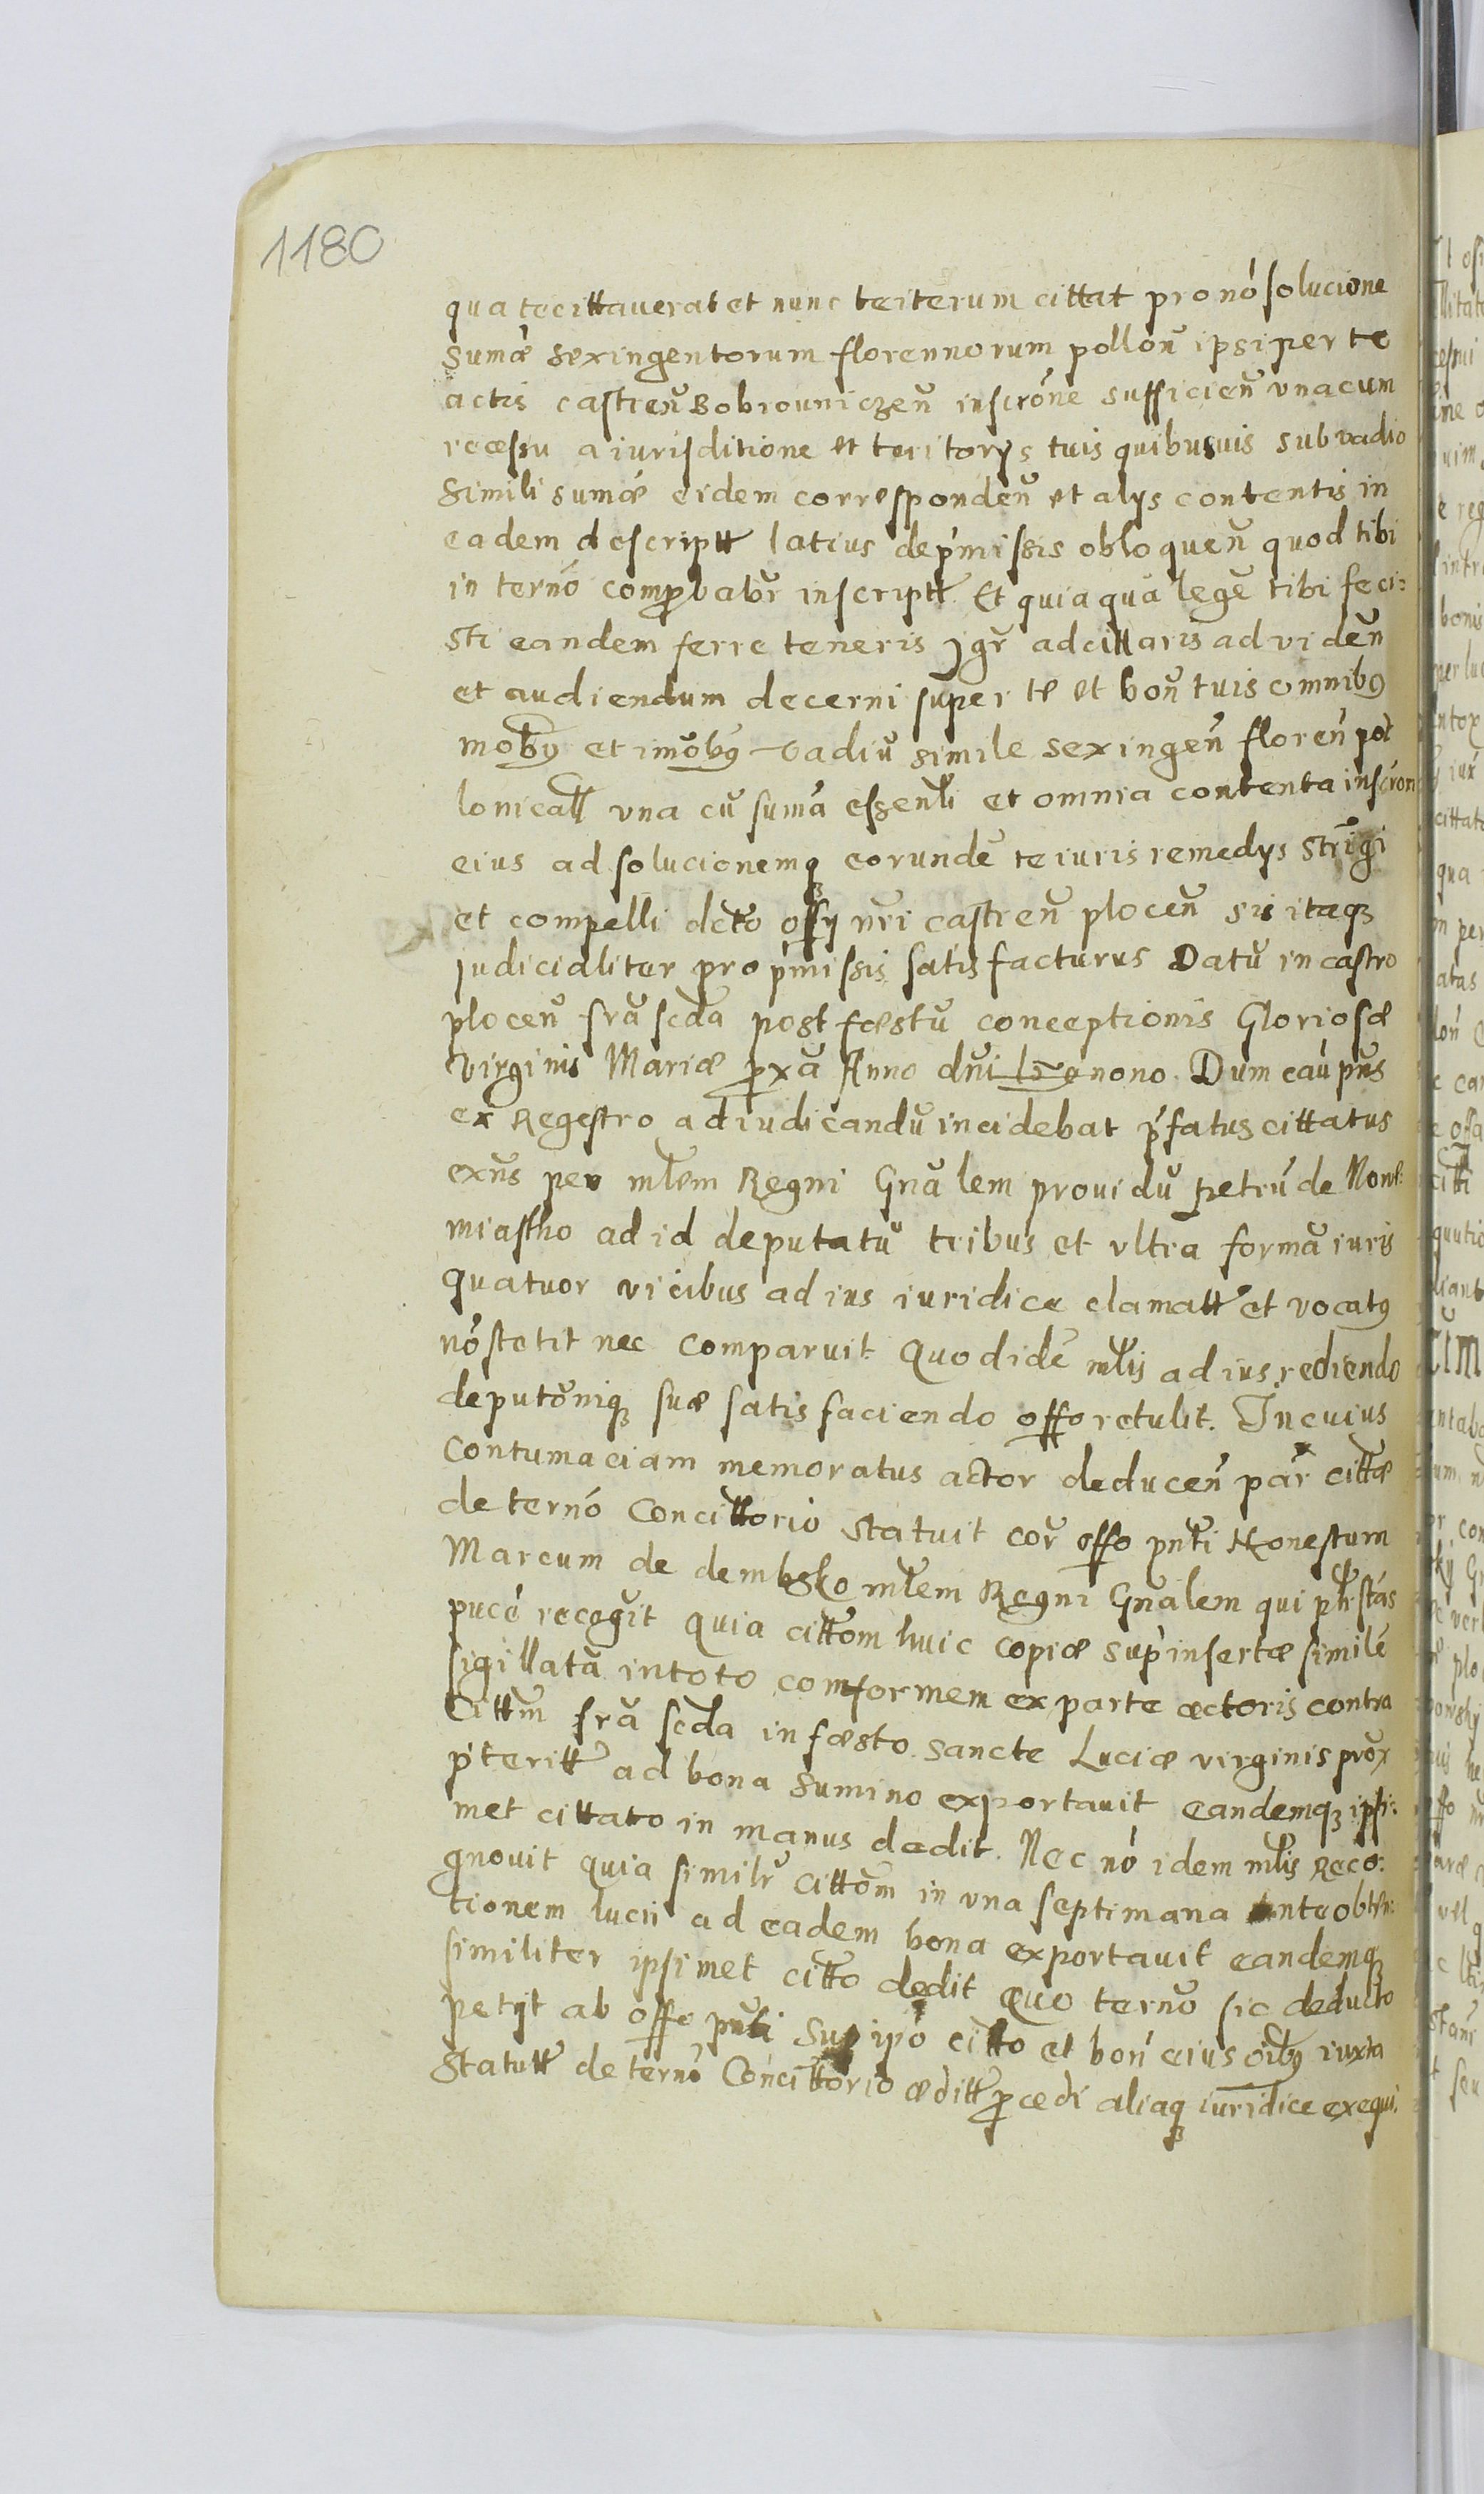 1180
qua te cittauerat et nunc te iterum cittat pro nō solucione
sumæ sexingentorum florennorum pollon̄ ipsi per te
actis castren̄ Bobrouniczen̄ inscrōne sufficien̄ vna cum
recessu a iurisditione et teritorys tuis quibusuis sub vadio
simili sumæ eidem corresponden̄ et alys contentis in
eadem descriptt latius de p̄missis obloquen̄ quod tibi
in ternō comprobabr̄ inscriptt Et quia quā legē tibi feci:
sti eandem ferre teneris Jgr̄ adcittaris ad viden̄
et audiendum decerni super te et bon̄ tuis omnibꝰ
mobꝰ et imobꝰ vadiū simile sexingen̄ floren̄ pol
lonicall vna cū sumā essenti et omnia contenta inscron
eius ad solucionemqꝫ eorundē te iuris remedys stringi
et compelli dcto offy nr̄i castren̄ plocen̄ sis itaqꝫ
judicialiter pro p̄missis satis facturus Datū in castro
plocen̄ fr̄a scda post fæstū conceptionis Gloriosæ
virginis Mariæ p̱xā Anno dn̄i lxo nono. Dum cau pn̄s
ex Regestro ad iudicandū incidebat p̄fatus cittatus
exn̄s per mlem Regni Gnālem prouidū petrū de Nowe
miastho ad id deputatū tribus et vltra formā iuris
quatuor vicibus ad ius iuridice clamatt et vocatꝰ
nō stetit nec comparuit Quod idē mlis ad ius rediendo
deputōniqꝫ suæ satis faciendo offo retulit. In cuius
contumaciam memoratus actor deducen̄ par cittæ
de ternō Concittorio statuit cor̄ offo pnti Honestum
Marcum de dembsko mlem Regni Gnālem qui pn̄r stās
pucē recogit quia cittom huic copiæ sup insertæ similē
sigillatā in toto comformem ex parte actoris contra
Cittm fr̄a scda in fæsto sancte Luciæ virginis prox
p̄teritt ad bona sumino exportauit eandemqꝫ ipsi:
met cittato in manus dedit. Nec nō idem mlis Reco:
gnouit quia similr̄ cittom in vna septimana ante obten:
tionem lucii ad eadem bona exportauit eandemqꝫ
similiter ipsimet citto dedit Quo ternō sic deducto
petyt ab offo pnti sup ipō citto et bon̄ eius oibꝰ iuxta
Statutt de ternō Concittorio æditt p̱cedi aliaqꝫ iuridice exequi.